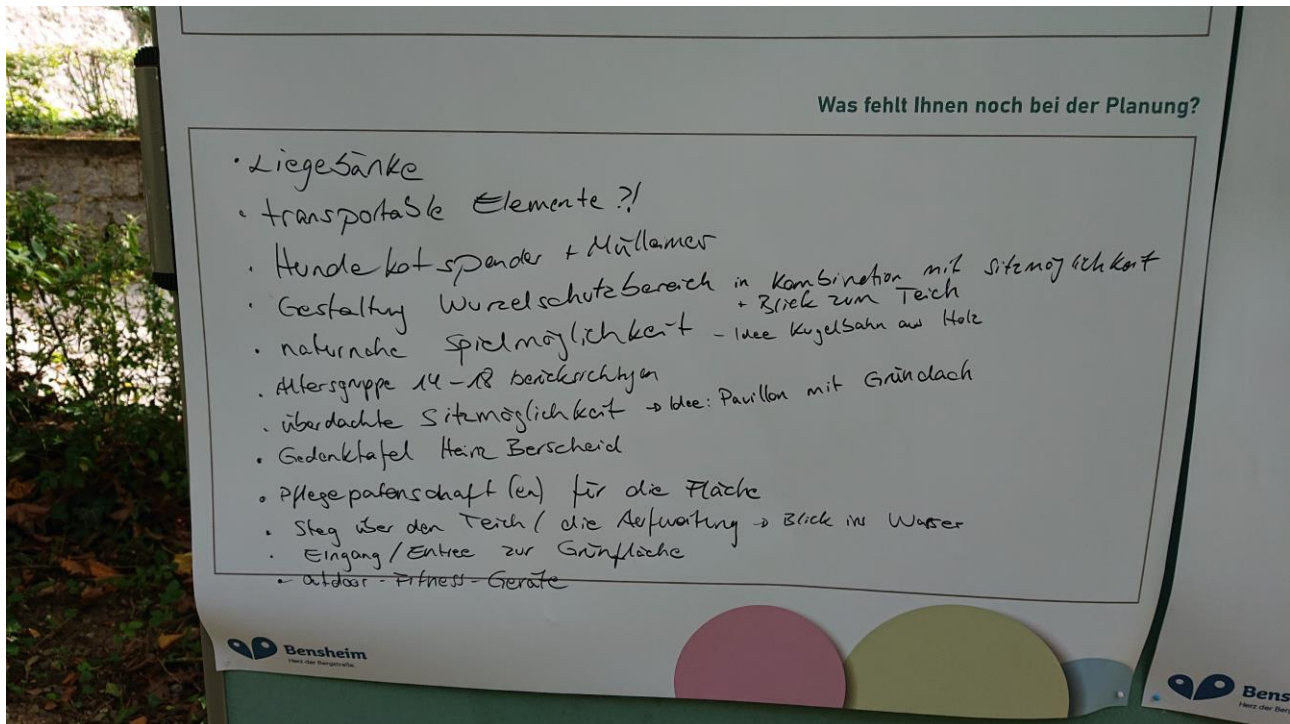 Was fehlt Ihnen noch bei der Planung?
· Liegebänke
· transportable Elemente ?!
· Hundekotspender + Mülleimer
· Gestaltung Wurzelschutzbereich in Kombination mit Sitzmöglichkeit
+ Blick zum Teich
· naturnahe Spielmöglichkeit - Idee Kugelbahn aus Holz
· Altersgruppe 14-18 berücksichtigen
· überdachte Sitzmöglichkeit → Idee: Pavillon mit Gründach
· Gedenktafel Heinz Berscheid
· Pflegepatenschaft (en) für die Fläche
· Steg über den Teich / die Aufweitung → Blick ins Wasser
· Eingang / Entree zur Grünfläche
· outdoor - Fitness - Geräte
Bensheim
Herz der Bergstraße
Bens
Herz der Berg